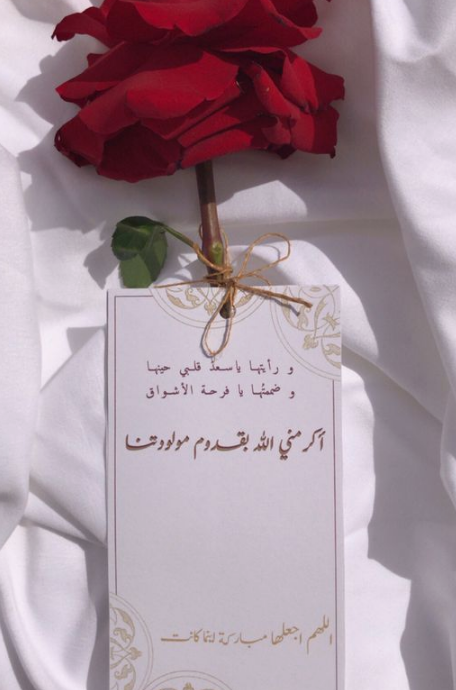 و رأيتها ياسعدَ قلبي حينها
و ضممتُها يا فرحة الأشواق
أكرمني الله بقدوم مولودتنا
اللهم اجعلها مباركة اينما كانت